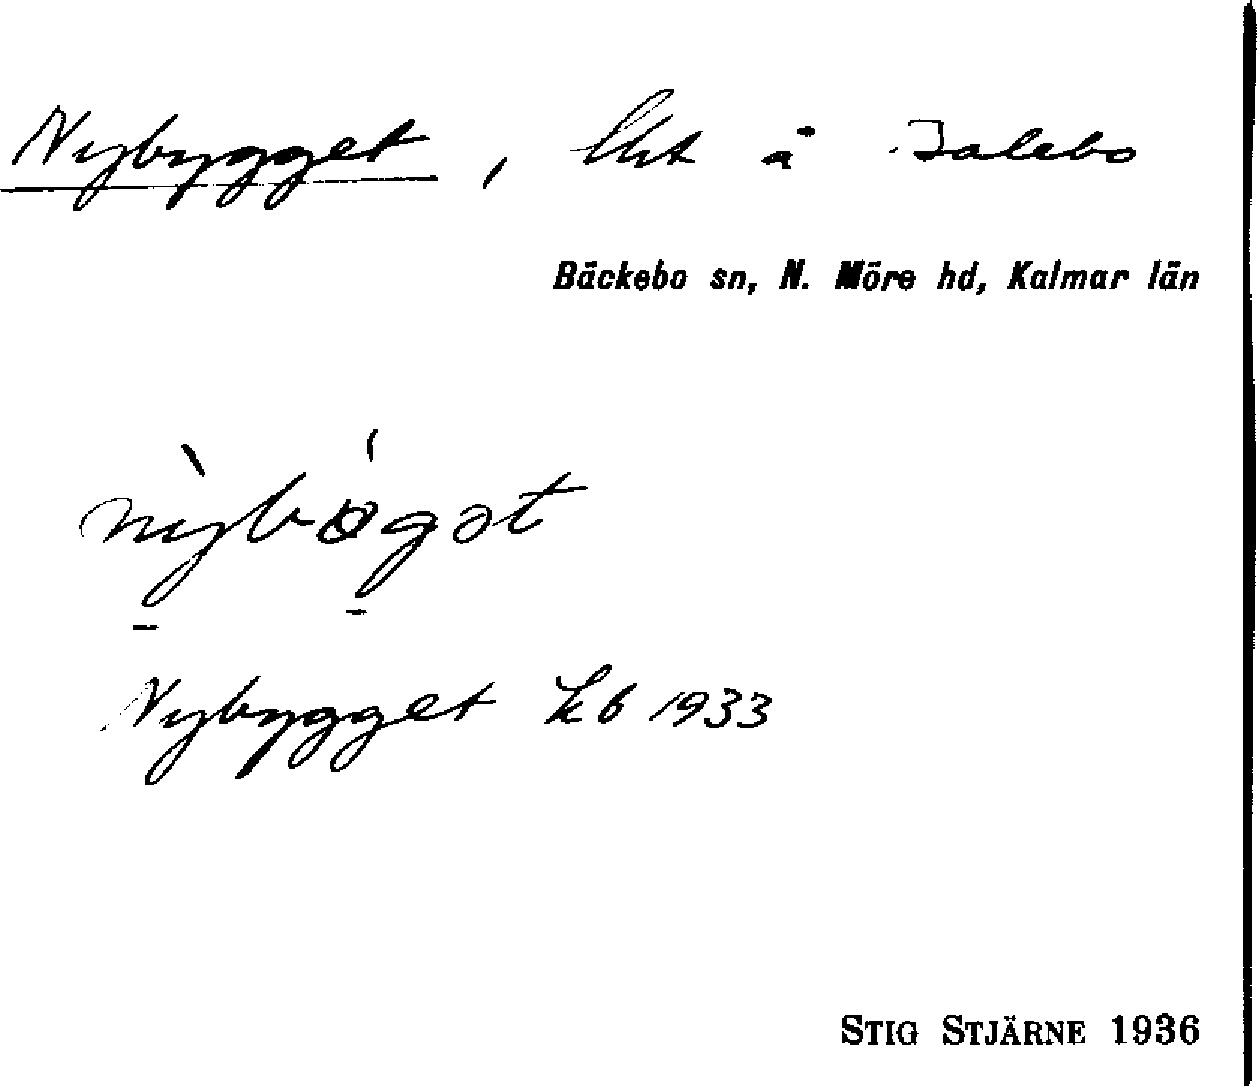 Nybygget, lht å Jalebo
Bäckebo sn, N. Möre hd, Kalmar län
nỳbǿgət
Nybygget kb 1933
STIG STJÄRNE 1936